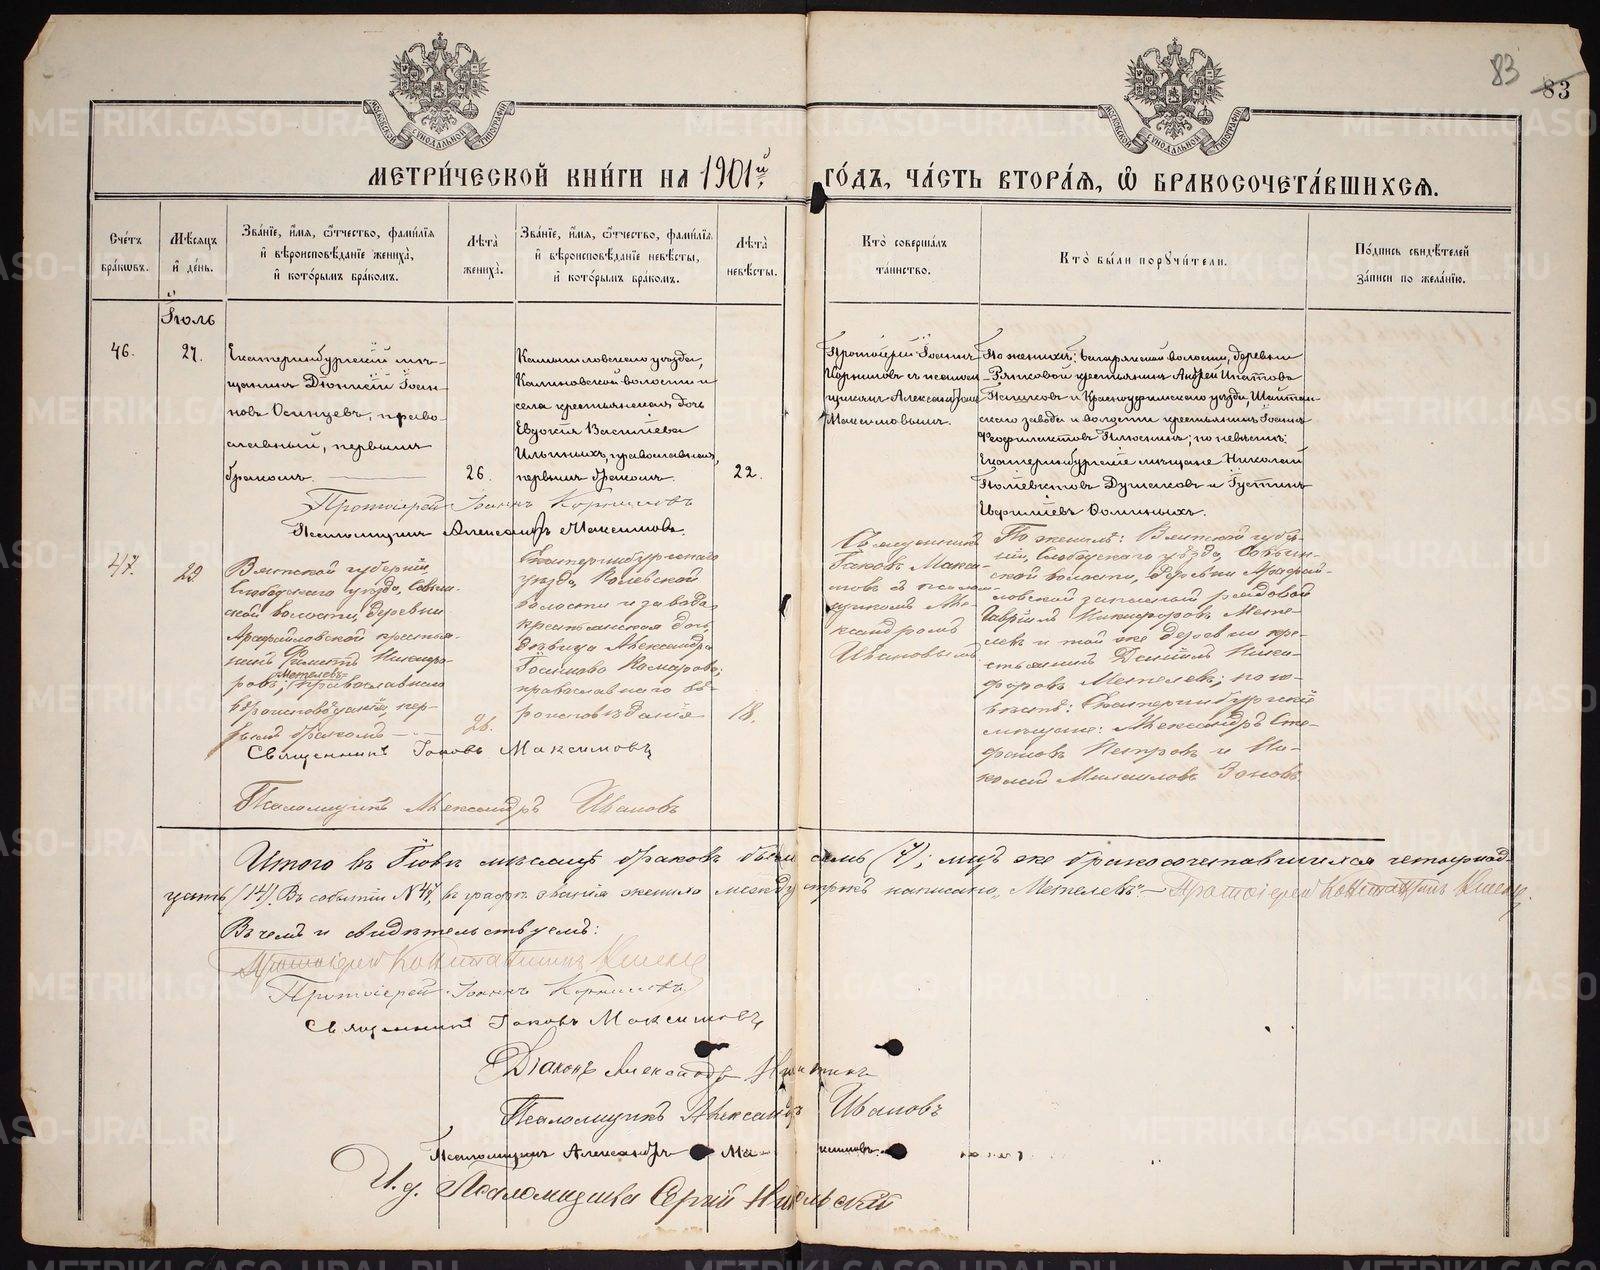 83
83
МОСКОВСКОЙ СѴНОДАЛЬНОЙ ТИПОГРАФІИ
МОСКОВСКОЙ СѴНОДАЛЬНОЙ ТИПОГРАФІИ
МЕТРИ́ЧЕСКОЙ КНИ́ГИ НА 1901й ГО́ДЪ, ЧА́СТЬ ВТОРА́Я, Ѽ БРАКОСОЧЕТА́ВШИХСЯ.
Сче́тъ бра́кωвъ.
Мѣ́сяцъ и҆ де́нь.
Зва́нїе, и҆́мѧ, ѻ҆́тчество, фами́лїѧ
и҆ вѣроисповѣ́данїе жениха̀,
и҆ кото́рымъ бра́комъ.
Лѣ́та жениха̀.
Зва́нїе, и҆́мѧ, ѻ҆́тчество, фами́лїѧ
и҆ вѣроисповѣ́данїе невѣ́сты,
и҆ кото́рымъ бра́комъ.
Лѣ́та невѣ́сты.
Кто̀ соверша́лъ
та́инство.
Кто̀ бы́ли порꙋчи́тели.
По́дпись свидѣ́телей
за́писи по жела́нїю.
Іюль
46.
27.
Екатеринбургскій мѣ-
щанинъ Діонисій Іоан
новъ Осинцевъ, право-
славный, первымъ
бракомъ.
26.
Камышловскаго уѣзда,
Калиновской волости и
села крестьянская дочь
Евдокія Васильева
Ильиныхъ, православная,
первымъ бракомъ.
22.
Протоіерей Іоаннъ
Корниловъ съ псалом
щикомъ Александромъ
Максимовымъ.
По женихѣ: Багарякской волости, деревни
крестьянинъ Андрей Ипатовъ
и Красноуфимскаго уѣзда, Шайтан
скаго завода и волости крестьянинъ Іоаннъ
Феофилактовъ; по невѣстѣ:
Екатеринбургскіе мѣщане Николай
Поліевктовъ Душаковъ и Іустинъ
Ѳоминыхъ.
Протоіерей Іоаннъ Корниловъ
Псаломщикъ Александръ Максимовъ.
47.
29.
Вятской губерніи,
Слободскаго уѣзда,
ской волости, деревни
крестья-
нинъ Никифо-
ровъ, Метелевъ православнаго
вѣроисповѣданія, пер-
вымъ бракомъ
26.
Екатеринбургскаго
уѣзда,
волости и завода
крестьянская дочь,
дѣвица Александра
Комарова;
православнаго вѣ-
роисповѣданія
18.
Священникъ
Іаковъ Макси-
мовъ съ псалом-
щикомъ Але-
ксандромъ
Ивановымъ
По женихѣ: Вятской губер-
ніи, Слободскаго уѣзда,
ской волости, деревни
ловской запасный рядовой
Гавріилъ Никифоровъ Мете-
левъ и той же деревни кре-
стьянинъ Даніилъ Ники-
форовъ Метелевъ; по не-
вѣстѣ: Екатеринбургскіе
мѣщане: Александръ Сте-
фановъ Петровъ и Ни-
колай Михаиловъ Зоновъ
Священникъ Іаковъ Максимовъ
Псаломщикъ Александръ Ивановъ
Итого въ Іюлѣ мѣсяцѣ браковъ было семь (7); лицъ же бракосочетавшихся четырнад-
цать (14). Въ событіи №47, въ графѣ званія жениха между строкъ написано „Метелевъ“ Протоіерей Константинъ
Въ чемъ и свидѣтельствуемъ:
Протоіерей Константинъ
Протоіерей Іоаннъ Корниловъ
Священникъ Іаковъ Максимовъ,
Діаконъ Александръ Никитинъ
Псаломщикъ Александръ Ивановъ
Псаломщикъ Александръ Максимовъ.
И. д. Псаломщика Сергій Никольскій
METRIKI.GASO-URAL.RU